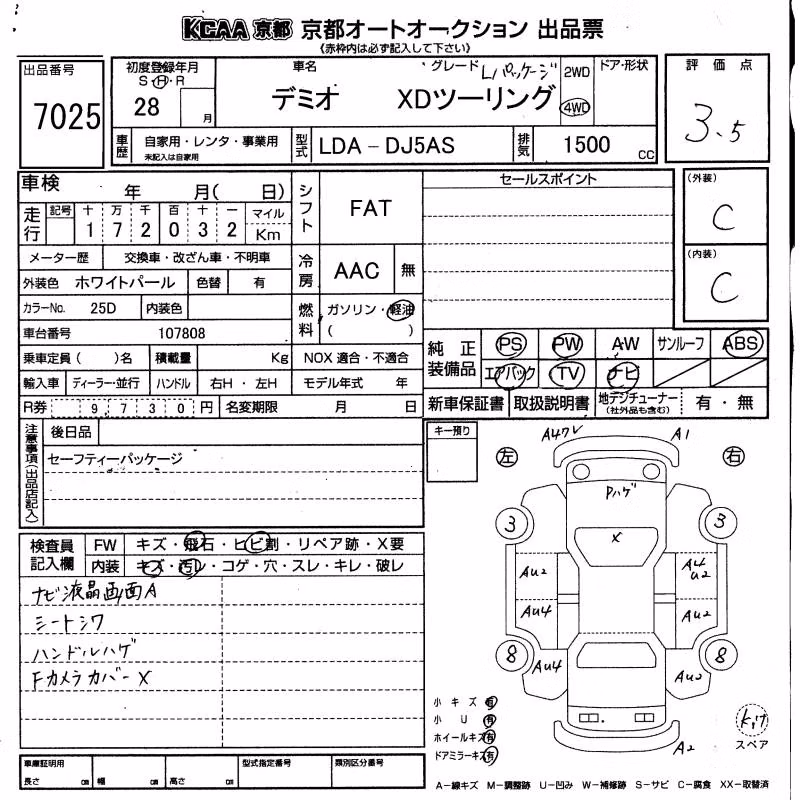 KCAA 京都 京都オートオークション 出品票
《赤枠内は必ず記入して下さい》
出品番号
7025
初度登録年月
S・H・R
28 月
車名
デミオ
グレード Lパッケージ
XDツーリング
2WD
4WD
ドア・形状
評価点
3.5
車歴
自家用・レンタ・事業用
未記入は自家用
型式
LDA－DJ5AS
排気
1500 CC
車検 年 月( 日)
シフト
FAT
セールスポイント
(外装)
C
走行
記号 十 万 千 百 十 一 マイル
1 7 2 0 3 2 Km
メーター歴 交換車・改ざん車・不明車
冷房
AAC 無
(内装)
C
外装色 ホワイトパール 色替 有
カラーNo. 25D 内装色
燃料
ガソリン・軽油
( )
車台番号 107808
純正装備品
PS PW AW サンルーフ ABS
エアバック TV ナビ
乗車定員( )名 積載量 Kg NOX 適合・不適合
輸入車 ディーラー・並行 ハンドル 右H・左H モデル年式 年
新車保証書 取扱説明書 地デジチューナー (社外品も含む) 有・無
R券 9,730円 名変期限 月 日
注意事項(出品店記入)
後日品
セーフティーパッケージ
キー預り
A47V
A1
左
右
Pハゲ
3
3
X
検査員記入欄
FW キズ・飛石・ヒビ割・リペア跡・X要
内装 キズ・汚レ・コゲ・穴・スレ・キレ・破レ
ナビ液晶画面A
シートシワ
ハンドルハゲ
FカメラカバーX
AU2
A4
U2
AU4
AU2
8
8
AU4
AU2
小キズ 有
小U 有
ホイールキズ 有
ドアミラーキズ 有
A2
スペア
車庫証明用
長さ cm 幅 cm 高さ cm
型式指定番号
類別区分番号
A－線キズ M－調整跡 U－凹み W－補修跡 S－サビ C－腐食 XX－取替済